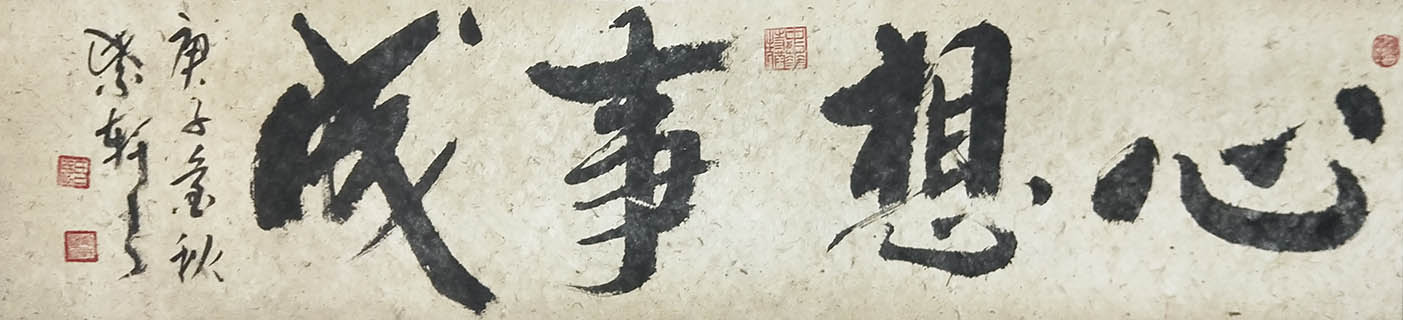 心想事成
庚子金秋
紫轩书